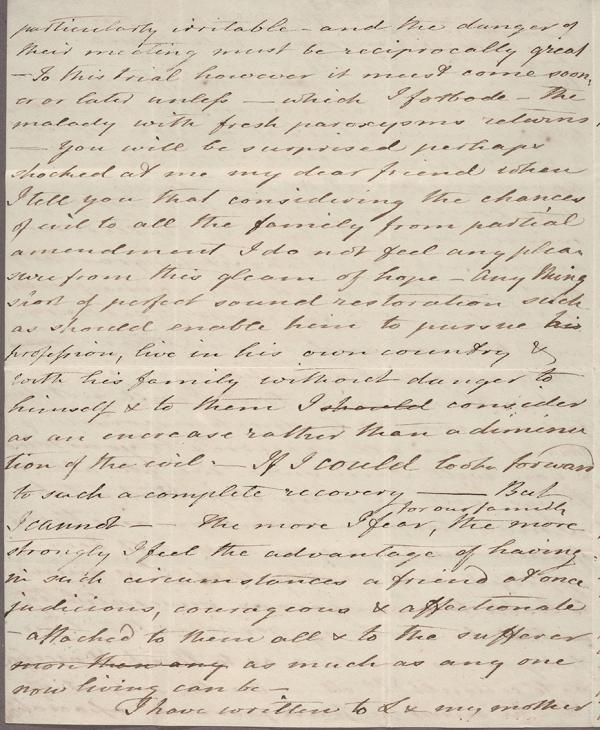 particularly irritable - and the danger of
their meeting must be reciprocally great
- To this trial however it must come soon,
er or later unless - which I forbode - the
malady with fresh paroxysms returns
- You will be surprised perhaps
shocked at me my dear friend when
I tell you that considering the chances
of evil to all the family from partial
amendment I do not feel any plea
sure from this gleam of hope - Any thing
short of perfect sound restoration such
as should enable him to pursue his
profession, live in his own country &
with his family without danger to
himself & to them I should consider
as an encrease rather than a diminu
tion of the evil - If I could look forward
to such a complete recovery - But
for our family
I cannot - The more I fear, the more
strongly I feel the advantage of having
in such circumstances a friend at once
judicious, courageous & affectionate
- attached to them all & to the sufferer
more than any as much as any one
now living can be -
I have written to & my mother